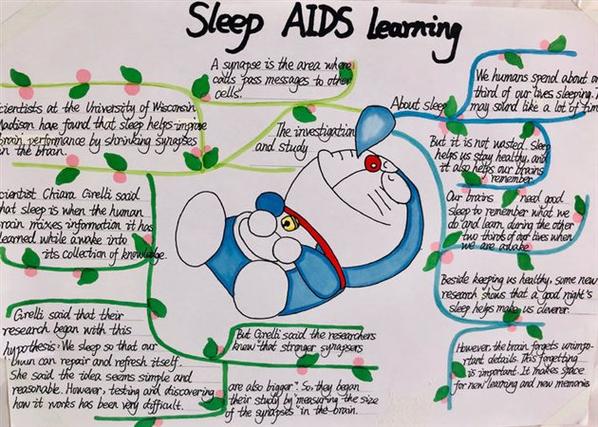 Sleep AIDS learning
A synapse is the area where
cells pass messages to other
cells.
About sleep
We humans spend about on
third of our lives sleeping. T
may sound like a lot of tim
cientists at the University of Wisconsin
Madison have found that sleep helps improve
brain performance by shrinking synapses
in the brain.
The investigation
and study
But it is not wasted. Sleep
helps us stay healthy, and
it also helps our brains
remember.
cientist Chiara Cirelli said
that sleep is when the human
brain mixes information it has
learned while awake into
its collection of knowledge.
Our brains need good
sleep to remember what we
do and learn during the other
two thirds of our lives when
we are awake
Beside keeping us healthy, some new
research shows that a good night's
sleep helps make us cleverer.
Cirelli said that their
research began with this
hypothesis: We sleep so that our
brain can repair and refresh itself.
She said the idea seems simple and
reasonable. However, testing and discovering
how it works has been very difficult.
But Cirelli said the researchers
knew "that stronger synapses
are also bigger". So, they began
their study by measuring the size
of the synapses in the brain.
However, the brain forgets unimpo-
rtant details. This forgetting
is important. It makes space
for new learning and new memories